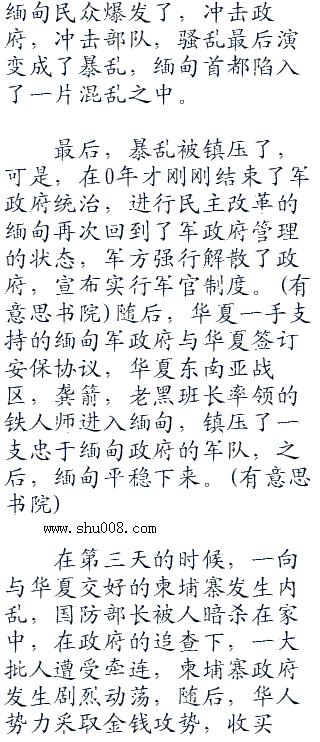 缅甸民众爆发了，冲击政
府，冲击部队，骚乱最后演
变成了暴乱，缅甸首都陷入
了一片混乱之中。
最后，暴乱被镇压了，
可是，在0年才刚刚结束了军
政府统治，进行民主改革的
缅甸再次回到了军政府管理
的状态，军方强行解散了政
府，宣布实行军官制度。(有
意思书院)随后，华夏一手支
持的缅甸军政府与华夏签订
安保协议，华夏东南亚战
区，龚箭，老黑班长率领的
铁人师进入缅甸，镇压了一
支忠于缅甸政府的军队，之
后，缅甸平稳下来。(有意思
书院)
www.shu008.com
在第三天的时候，一向
与华夏交好的柬埔寨发生内
乱，国防部长被人暗杀在家
中，在政府的追查下，一大
批人遭受牵连，柬埔寨政府
发生剧烈动荡，随后，华人
势力采取金钱攻势，收买